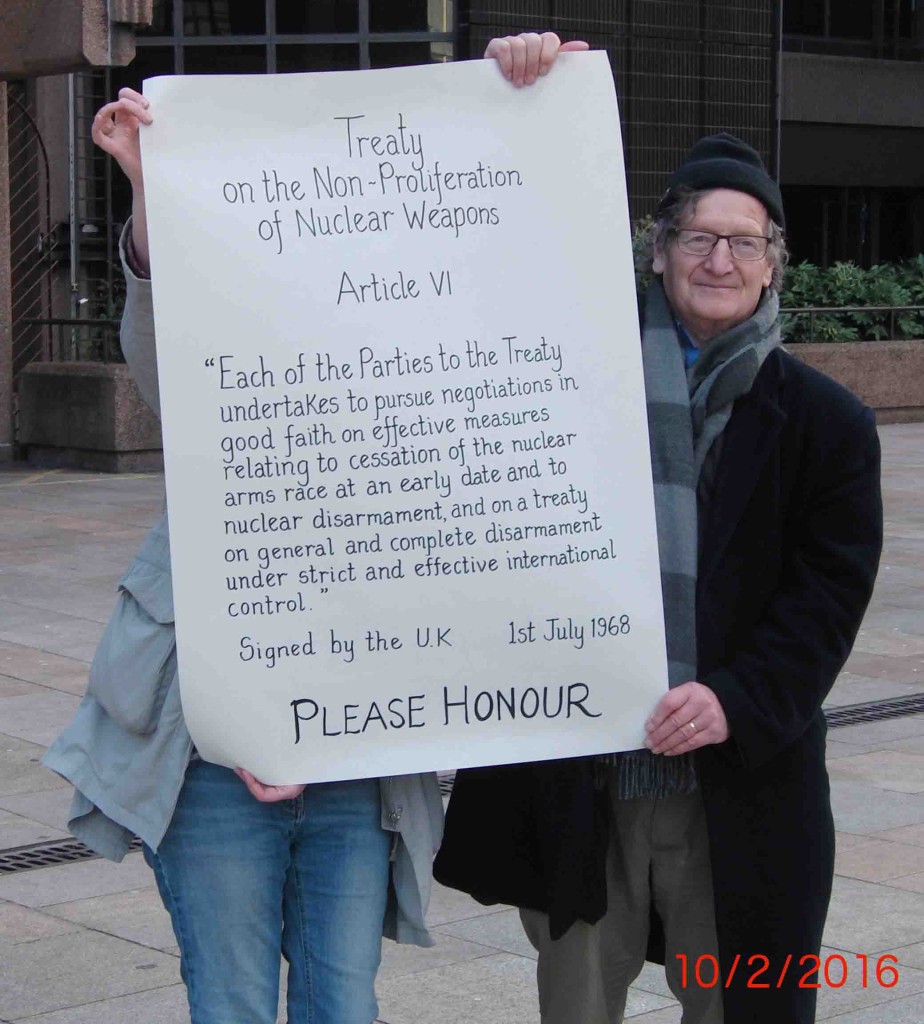 Treaty
on the Non-Proliferation
of Nuclear Weapons
Article VI
"Each of the Parties to the Treaty
undertakes to pursue negotiations in
good faith on effective measures
relating to cessation of the nuclear
arms race at an early date and to
nuclear disarmament, and on a treaty
on general and complete disarmament
under strict and effective international
control."
Signed by the U.K 1st July 1968
PLEASE HONOUR
10/2/2016